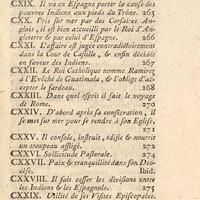 CXIX. Il va en Espagne porter la cause des
pauvres Indiens aux pieds du Trône. 265
CXX. Pris sur mar par des Corsaires An-
glois, il est bien accueilli par le Roi d'An-
gleterre & par celui d'Espagne. 266
CXXI. L'affaire est jugée contradictoirement
dans la Cour de Castille, & enfin décidée
en faveur des Indiens. 267
CXXII. Le Roi Catholique nomme Ramirez
à l'Evêché de Guatimala, & l'oblige d'ac-
cepter le fardeau. 268
CXXIII. Dans quel esprit il fait le voyage
de Rome. 270
CXXIV. D'abord après sa consécration, il
se mes sur mer pour se rendre à son Eglise.
271
CXXV. Il console, instruit, édifie & nourrit
un troupeau affligé. 272
CXXVI. Sollicitude Pastorale. 274
CXXVII. Paix & tranquillité dans son Dio-
cèse. Ibid.
CXXVIII. Il fait cesser les divisions entre
les Indiens & les Espagnols. 275
CXXIX. Utilité de ses Visites Episcopales.